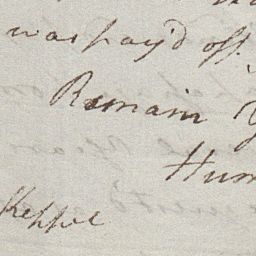 was pay'd off
Remain
Hum
Keppel